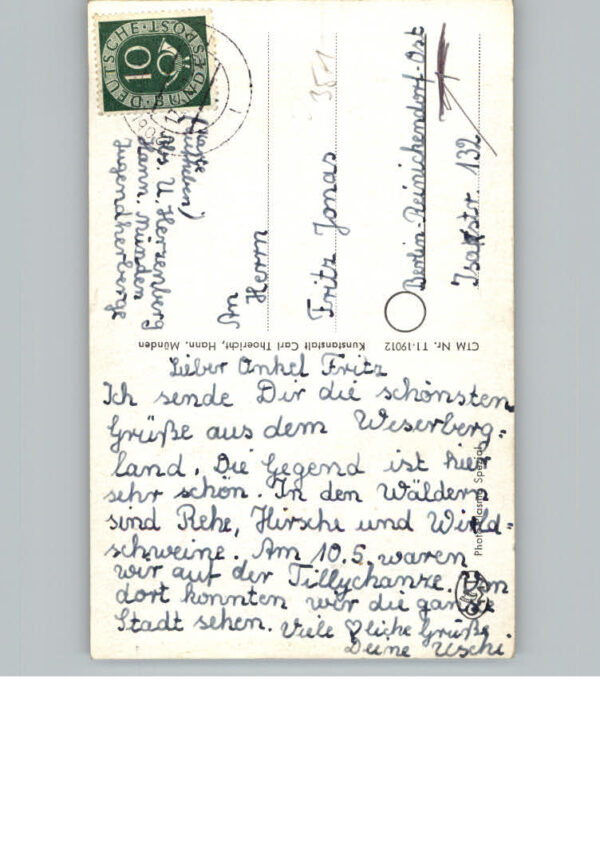 DEUTSCHE BUNDESPOST
10
(Karte
aufheben)
Abs. U. Herzenberg
Hann. Münden
Jugendherberge
An
Herrn
Fritz Jonas
Berlin-Reinickendorf-Ost
132
CTM Nr. T1-19012 Kunstanstalt Carl Thoericht, Hann. Münden
Lieber Onkel Fritz
Ich sende Dir die schönsten
Grüße aus dem Weserberg=
land. Die Gegend ist hier
sehr schön. In den Wäldern
sind Rehe, Hirsche und Wild=
schweine. Am 10.5. waren
wir auf der Tillychanze. Von
dort konnten wir die ganze
Stadt sehen. Viele ♡liche Grüße
Deine Uschi